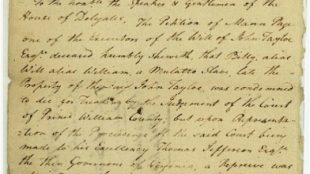 To the honble the Speaker & Gentlemen of the
House of Delegates.
The Petition of Mann Page
one of the Executors of the Will of John Tayloe
Esqr. deceased humbly sheweth, that Billy, alias
Will alias William, a Mulatto Slave, late the
Property of the said John Tayloe, was condemned
to die for Treason by the Judgement of the Court
of Prince William County; but upon Representa-
tion of the Proceedings of the said Court being
made to his Excellency Thomas Jefferson Esqr.
the then Governour of Virginia, a Reprieve was